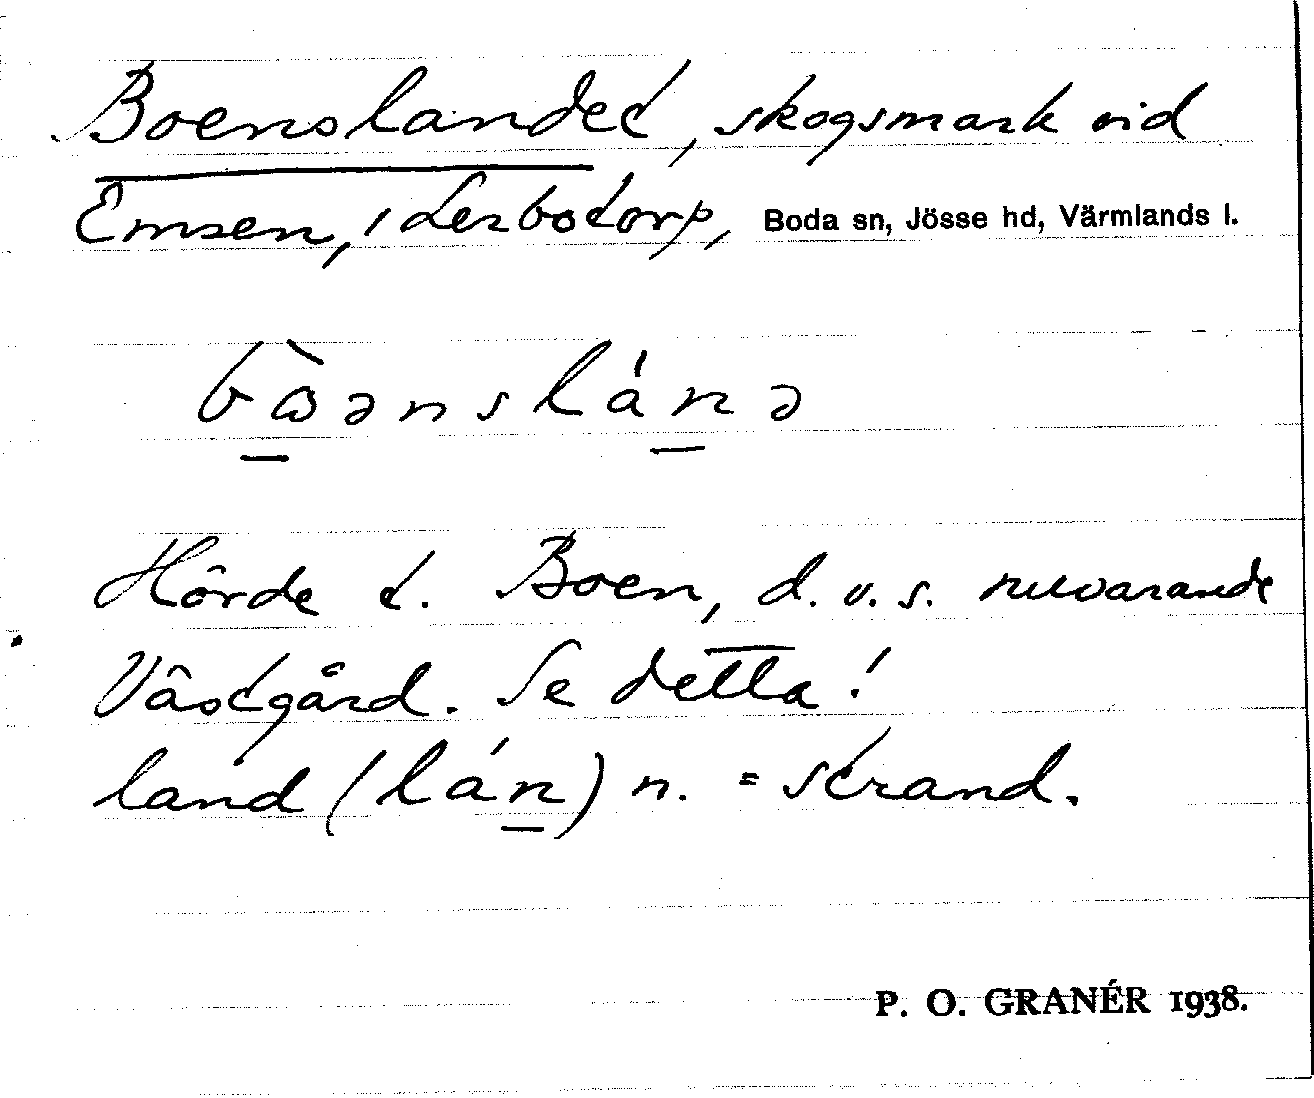 Boenslandet, skogsmark vid
Emsen, i Lerbotorp, Boda sn, Jösse hd, Värmlands l.
bòənslánə
Hörde t. Boen, d. v. s. nuvarande
Västgård. Se detta!
land (lán) n. = strand.
P. O. GRANÉR 1938.